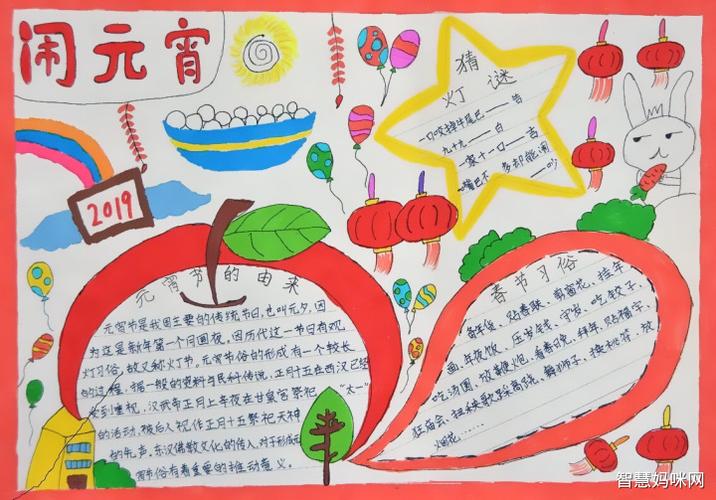 闹元宵
2019
猜
灯谜
一口咬掉牛尾巴——告
九十九——白
一家十一口——吉
嘴巴不多却能闹——吵
元宵节的由来
元宵节是我国主要的传统节日,也叫元夕,因
为这是新年第一个月圆夜。因历代这一节日有观
灯习俗,故又称灯节。元宵节俗的形成有一个较长
的过程,据一般的资料与民俗传说,正月十五在西汉已经
受到重视,汉武帝正月上辛夜在甘泉宫祭祀“太一”
的活动,被后人视作正月十五祭祀天神
的先声。东汉佛教文化的传入,对于形成元
宵节俗有着重要的推动意义。
春节习俗
备年货、贴春联、剪窗花、挂年
画、年夜饭、压岁钱、守岁、吃饺子、
吃汤圆、放鞭炮、看春晚、拜年、贴福字、
逛庙会、扭秧歌、踩高跷、舞狮子、换桃符、放
烟花……
智慧妈咪网